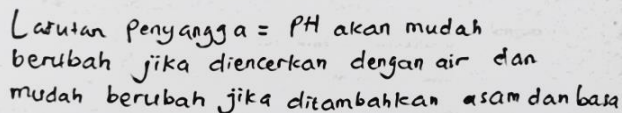 Larutan Penyangga = PH akan mudah
berubah jika diencerkan dengan air dan
mudah berubah jika ditambahkan asam dan basa